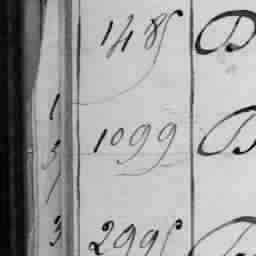 1485 D
1
1099 D
3
1
3 2995